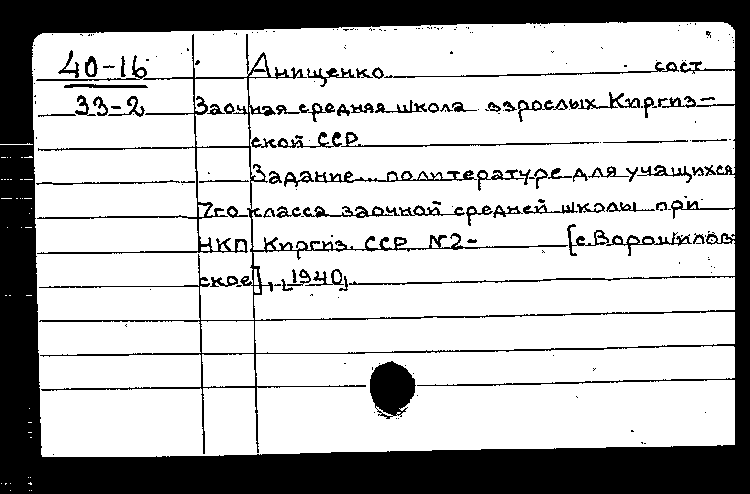 40-16 Анищенко сост
33-2 Заочная средняя школа взрослых Киргиз-
ской ССР.
Задание... по литературе для учащихся
7го класса заочной средней школы при
НКП Киргиз. ССР. №2- [с.Ворошилов-
ское], 1940.